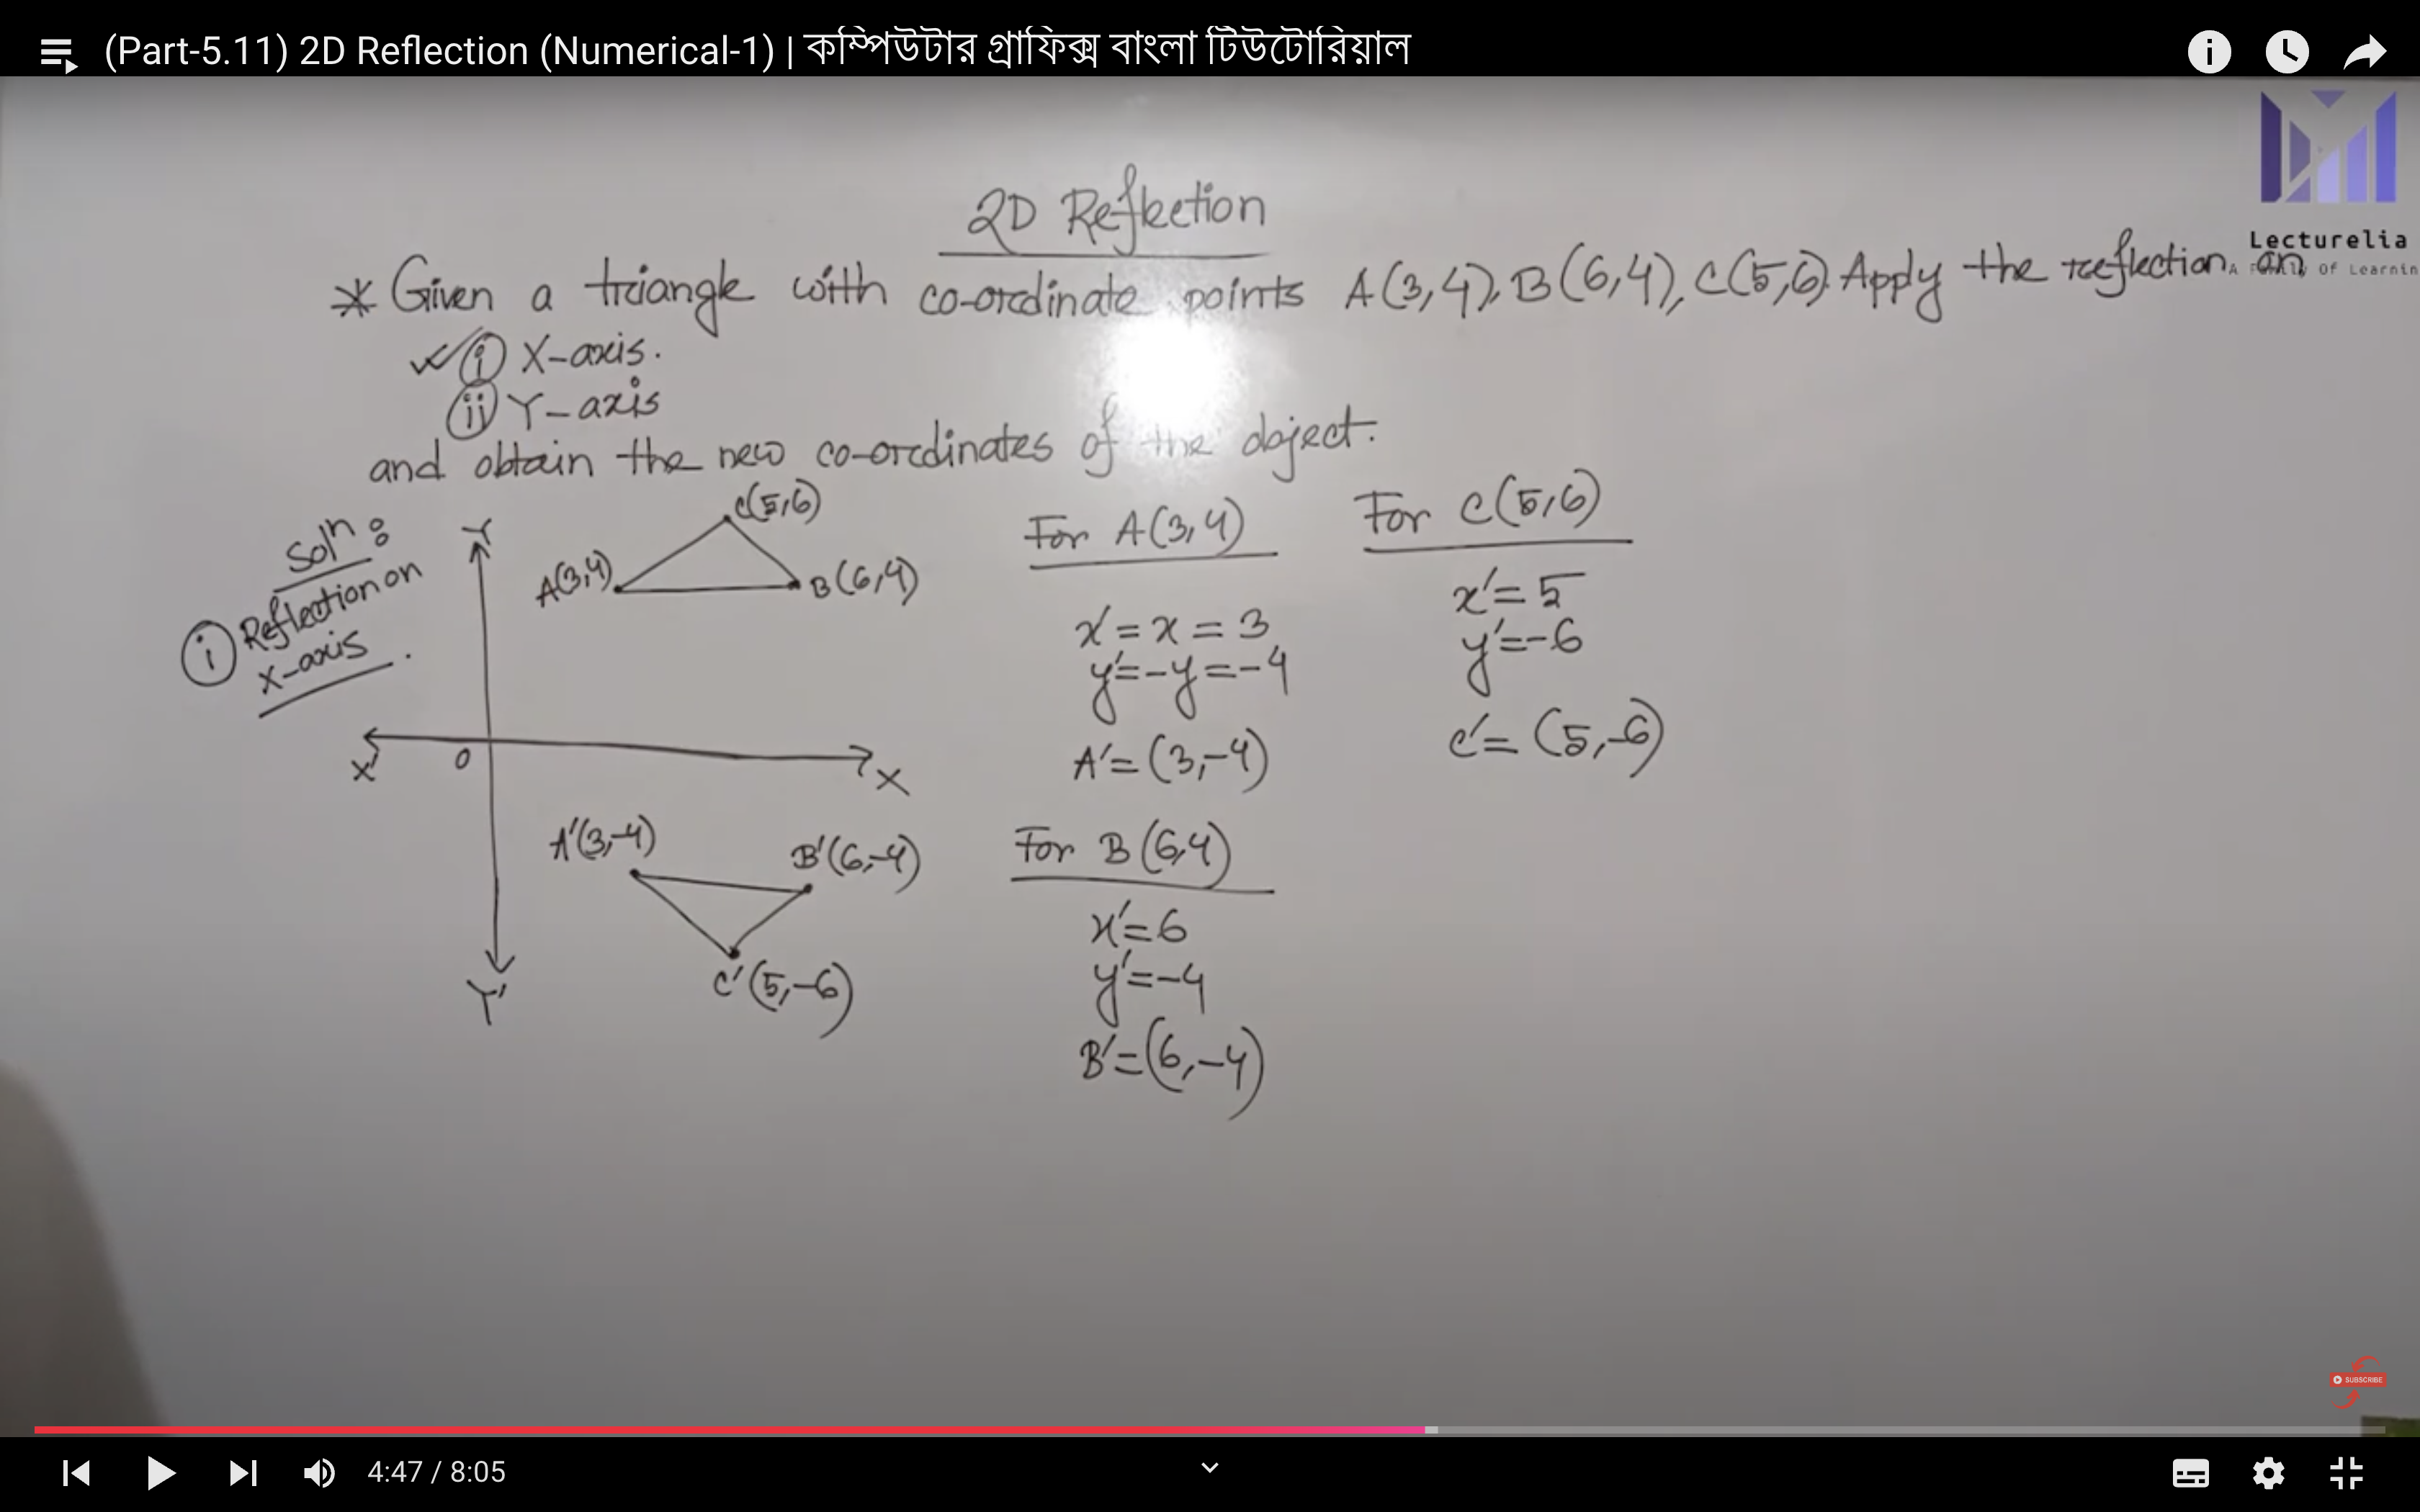 (Part-5.11) 2D Reflection (Numerical-1) | কম্পিউটার গ্রাফিক্স বাংলা টিউটোরিয়াল
Lecturelia
A Family Of Learnin
2D Reflection
* Given a triangle with co-ordinate points A(3,4), B(6,4), C(5,6). Apply the reflection on
✓ⓘ X-axis.
ⓘⓘ Y-axis
and obtain the new co-ordinates of the object.
Soln:
ⓘ Reflection on
X-axis.
Y
C(5,6)
A(3,4)
B(6,4)
X'
0
X
A'(3,-4)
B'(6,-4)
C'(5,-6)
Y'
For A(3,4)
x'=x=3
y'=-y=-4
A'=(3,-4)
For B(6,4)
x'=6
y'=-4
B'=(6,-4)
For C(5,6)
x'=5
y'=-6
C'=(5,-6)
SUBSCRIBE
4:47 / 8:05